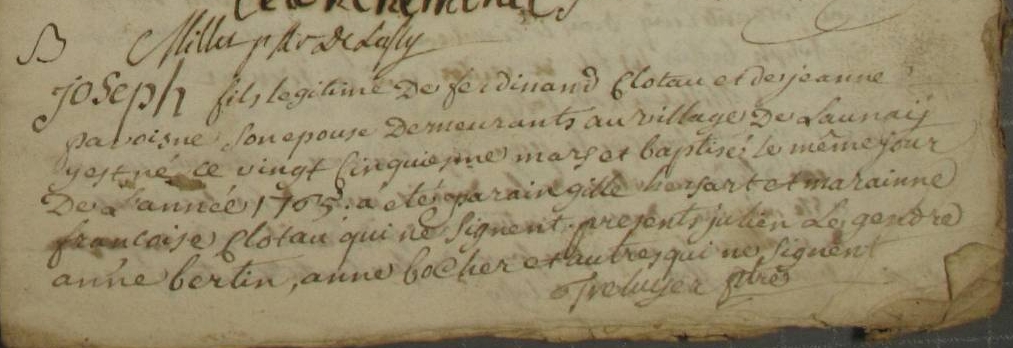 B
joseph fils legitime De ferdinand Clotau et de jeanne
pavoisne son epouse Demeurants au village De Launaij
y est né ce vingt Cinquieme mars et baptisé le même jour
De L'année 1765: a eté parain gille hersart et marainne
francoise Clotau qui ne signent. presents julien Le gendre
anne bertin, anne bocher et autres qui ne signent